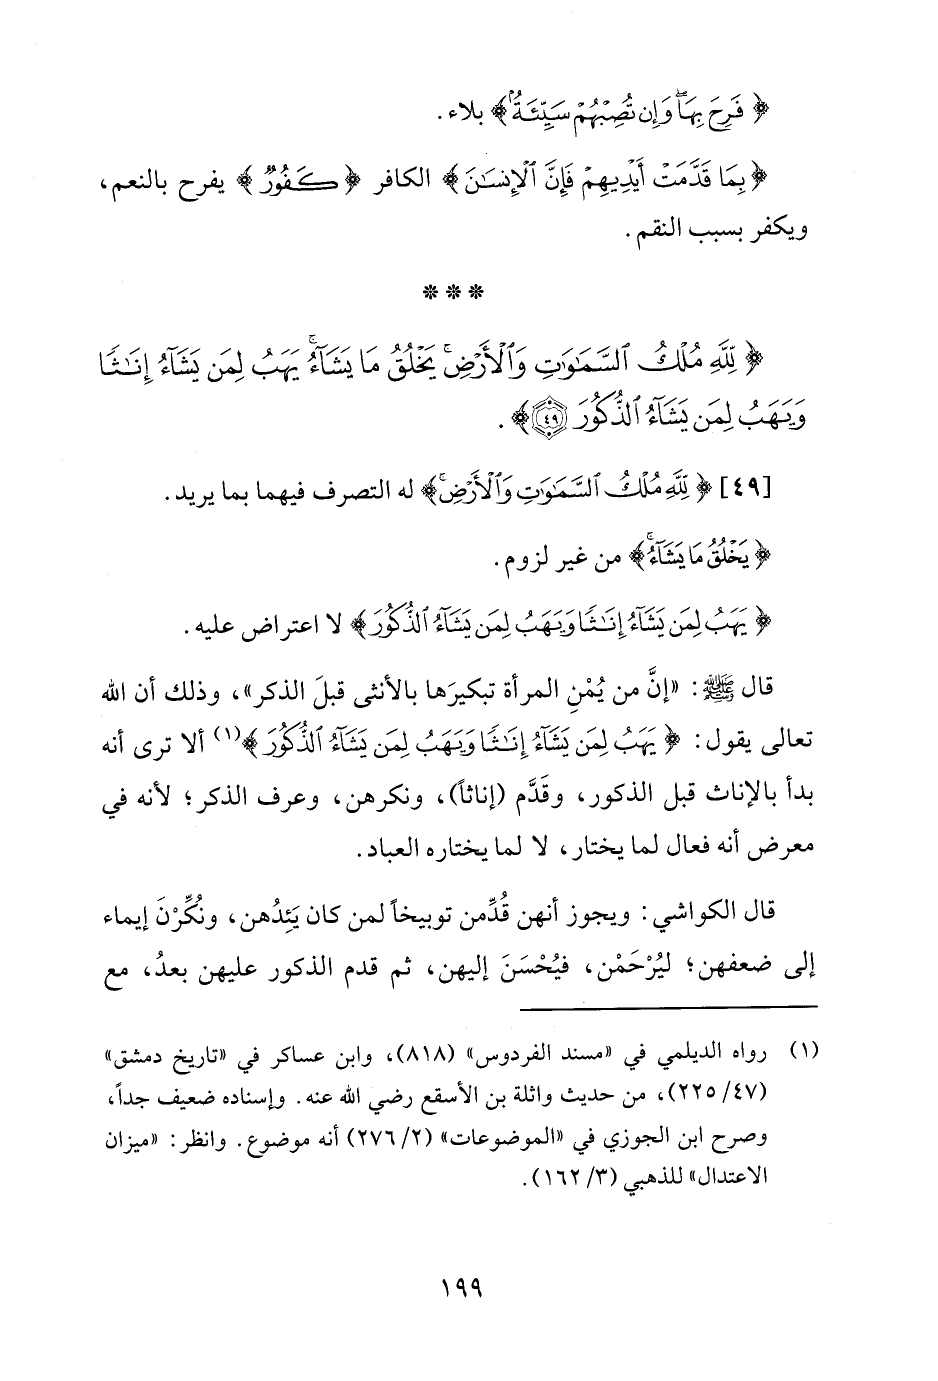 ﴿ فَرِحَ بِهَا ۖ وَإِن تُصِبْهُمْ سَيِّئَةٌۢ ﴾ بلاء .
﴿ بِمَا قَدَّمَتْ أَيْدِيهِمْ فَإِنَّ ٱلْإِنسَٰنَ ﴾ الكافر ﴿ كَفُورٌ ﴾ يفرح بالنعم،
ويكفر بسبب النقم .
* * *
﴿ لِّلَّهِ مُلْكُ ٱلسَّمَٰوَٰتِ وَٱلْأَرْضِ ۚ يَخْلُقُ مَا يَشَآءُ ۚ يَهَبُ لِمَن يَشَآءُ إِنَٰثًا
وَيَهَبُ لِمَن يَشَآءُ ٱلذُّكُورَ ٤٩ ﴾ .
[٤٩] ﴿ لِّلَّهِ مُلْكُ ٱلسَّمَٰوَٰتِ وَٱلْأَرْضِ ۚ ﴾ له التصرف فيهما بما يريد .
﴿ يَخْلُقُ مَا يَشَآءُ ۚ ﴾ من غير لزوم .
﴿ يَهَبُ لِمَن يَشَآءُ إِنَٰثًا وَيَهَبُ لِمَن يَشَآءُ ٱلذُّكُورَ ﴾ لا اعتراض عليه .
قال ﷺ: «إنَّ من يُمْنِ المرأة تبكيرَها بالأنثى قبلَ الذكر»، وذلك أن الله
تعالى يقول: ﴿ يَهَبُ لِمَن يَشَآءُ إِنَٰثًا وَيَهَبُ لِمَن يَشَآءُ ٱلذُّكُورَ ﴾(١) ألا ترى أنه
بدأ بالإناث قبل الذكور، وقدَّم (إناثاً)، ونكرهن، وعرف الذكر؛ لأنه في
معرض أنه فعال لما يختار، لا لما يختاره العباد.
قال الكواشي: ويجوز أنهن قُدِّمن توبيخاً لمن كان يَئِدُهن، ونُكِّرْنَ إيماء
إلى ضعفهن؛ ليُرْحَمْن، فيُحْسَنَ إليهن، ثم قدم الذكور عليهن بعدُ، مع
(١) رواه الديلمي في «مسند الفردوس» (٨١٨)، وابن عساكر في «تاريخ دمشق»
(٤٧/ ٢٢٥)، من حديث واثلة بن الأسقع رضي الله عنه. وإسناده ضعيف جداً،
وصرح ابن الجوزي في «الموضوعات» (٢/ ٢٧٦) أنه موضوع. وانظر: «ميزان
الاعتدال» للذهبي (٣/ ١٦٢).
١٩٩